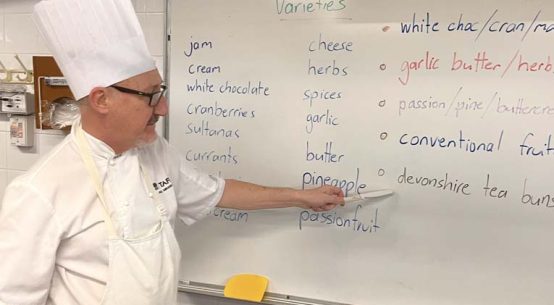 Varieties
jam
cream
white chocolate
cranberries
sultanas
currants
cream
cheese
herbs
spices
garlic
butter
pineapple
passionfruit
white choc/cran/ma
garlic butter/herb
passion/pine/buttercre
conventional fruit
devonshire tea buns
TAF